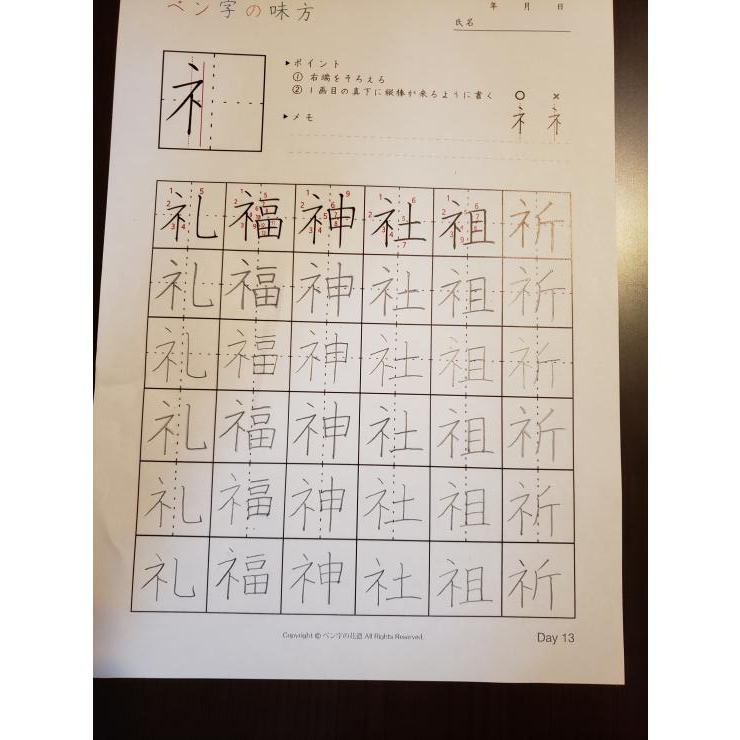 ペン字の味方
年 月 日
氏名
ネ
▶ポイント
① 右端をそろえる
② 1画目の真下に縦棒が来るように書く
○ ×
ネ ネ
▶メモ
礼 福 神 社 祖 祈
礼 福 神 社 祖 祈
礼 福 神 社 祖 祈
礼 福 神 社 祖 祈
礼 福 神 社 祖 祈
礼 福 神 社 祖 祈
Copyright © ペン字の花道 All Rights Reserved.
Day 13